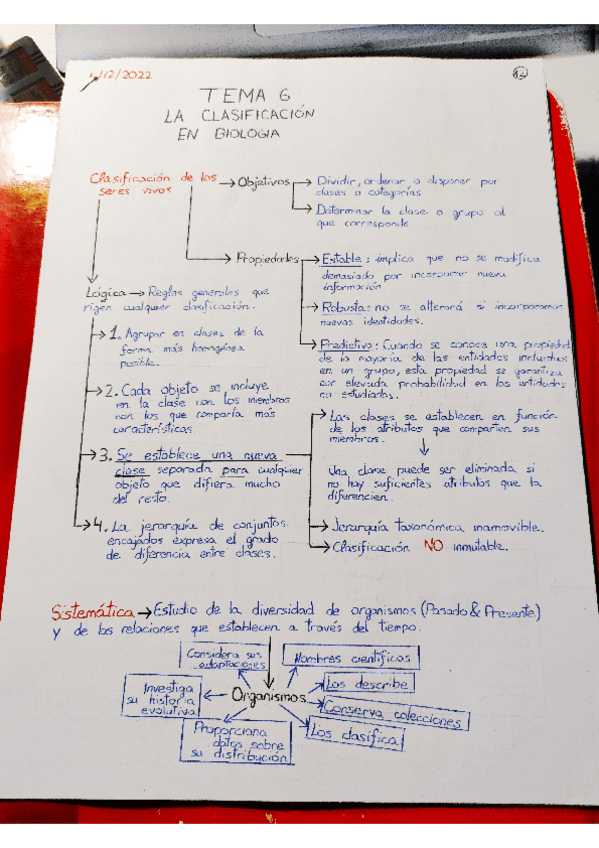 /12/2022
TEMA 6
LA CLASIFICACIÓN
EN BIOLOGIA
Clasificación de los
seres vivos
Objetivos
Dividir, ordenar o disponer por
clases o categorías
Determinar la clase o grupo al
que corresponde
Propiedades
Estable: implica que no se modifica
demasiado por incorporar nueva
información
Robusta: no se alterará si incorporamos
nuevas identidades.
Predictiva: Cuando se conoce una propiedad
de la mayoría de las entidades incluidas
en un grupo, esta propiedad se garantiza
con elevada probabilidad en las entidades
no estudiadas.
Lógica → Reglas generales que
rigen cualquier clasificación.
1. Agrupar en clases de la
forma más homogénea
posible.
2. Cada objeto se incluye
en la clase con los miembros
con los que comparta más
características
3. Se establece una nueva
clase separada para cualquier
objeto que difiera mucho
del resto.
4. La jerarquía de conjuntos
encajados expresa el grado
de diferencia entre clases.
Las clases se establecen en función
de los atributos que comparten sus
miembros.
Una clase puede ser eliminada si
no hay suficientes atributos que la
diferencien.
Jerarquía taxonómica inamovible.
Clasificación NO inmutable.
Sistemática → Estudio de la diversidad de organismos (Pasado & Presente)
y de las relaciones que establecen a través del tiempo.
Considera sus
adaptaciones
Nombres científicos
Los describe
Investiga
su historia
evolutiva
Organismos
Conserva colecciones
Proporciona
datos sobre
su distribución
Los clasifica